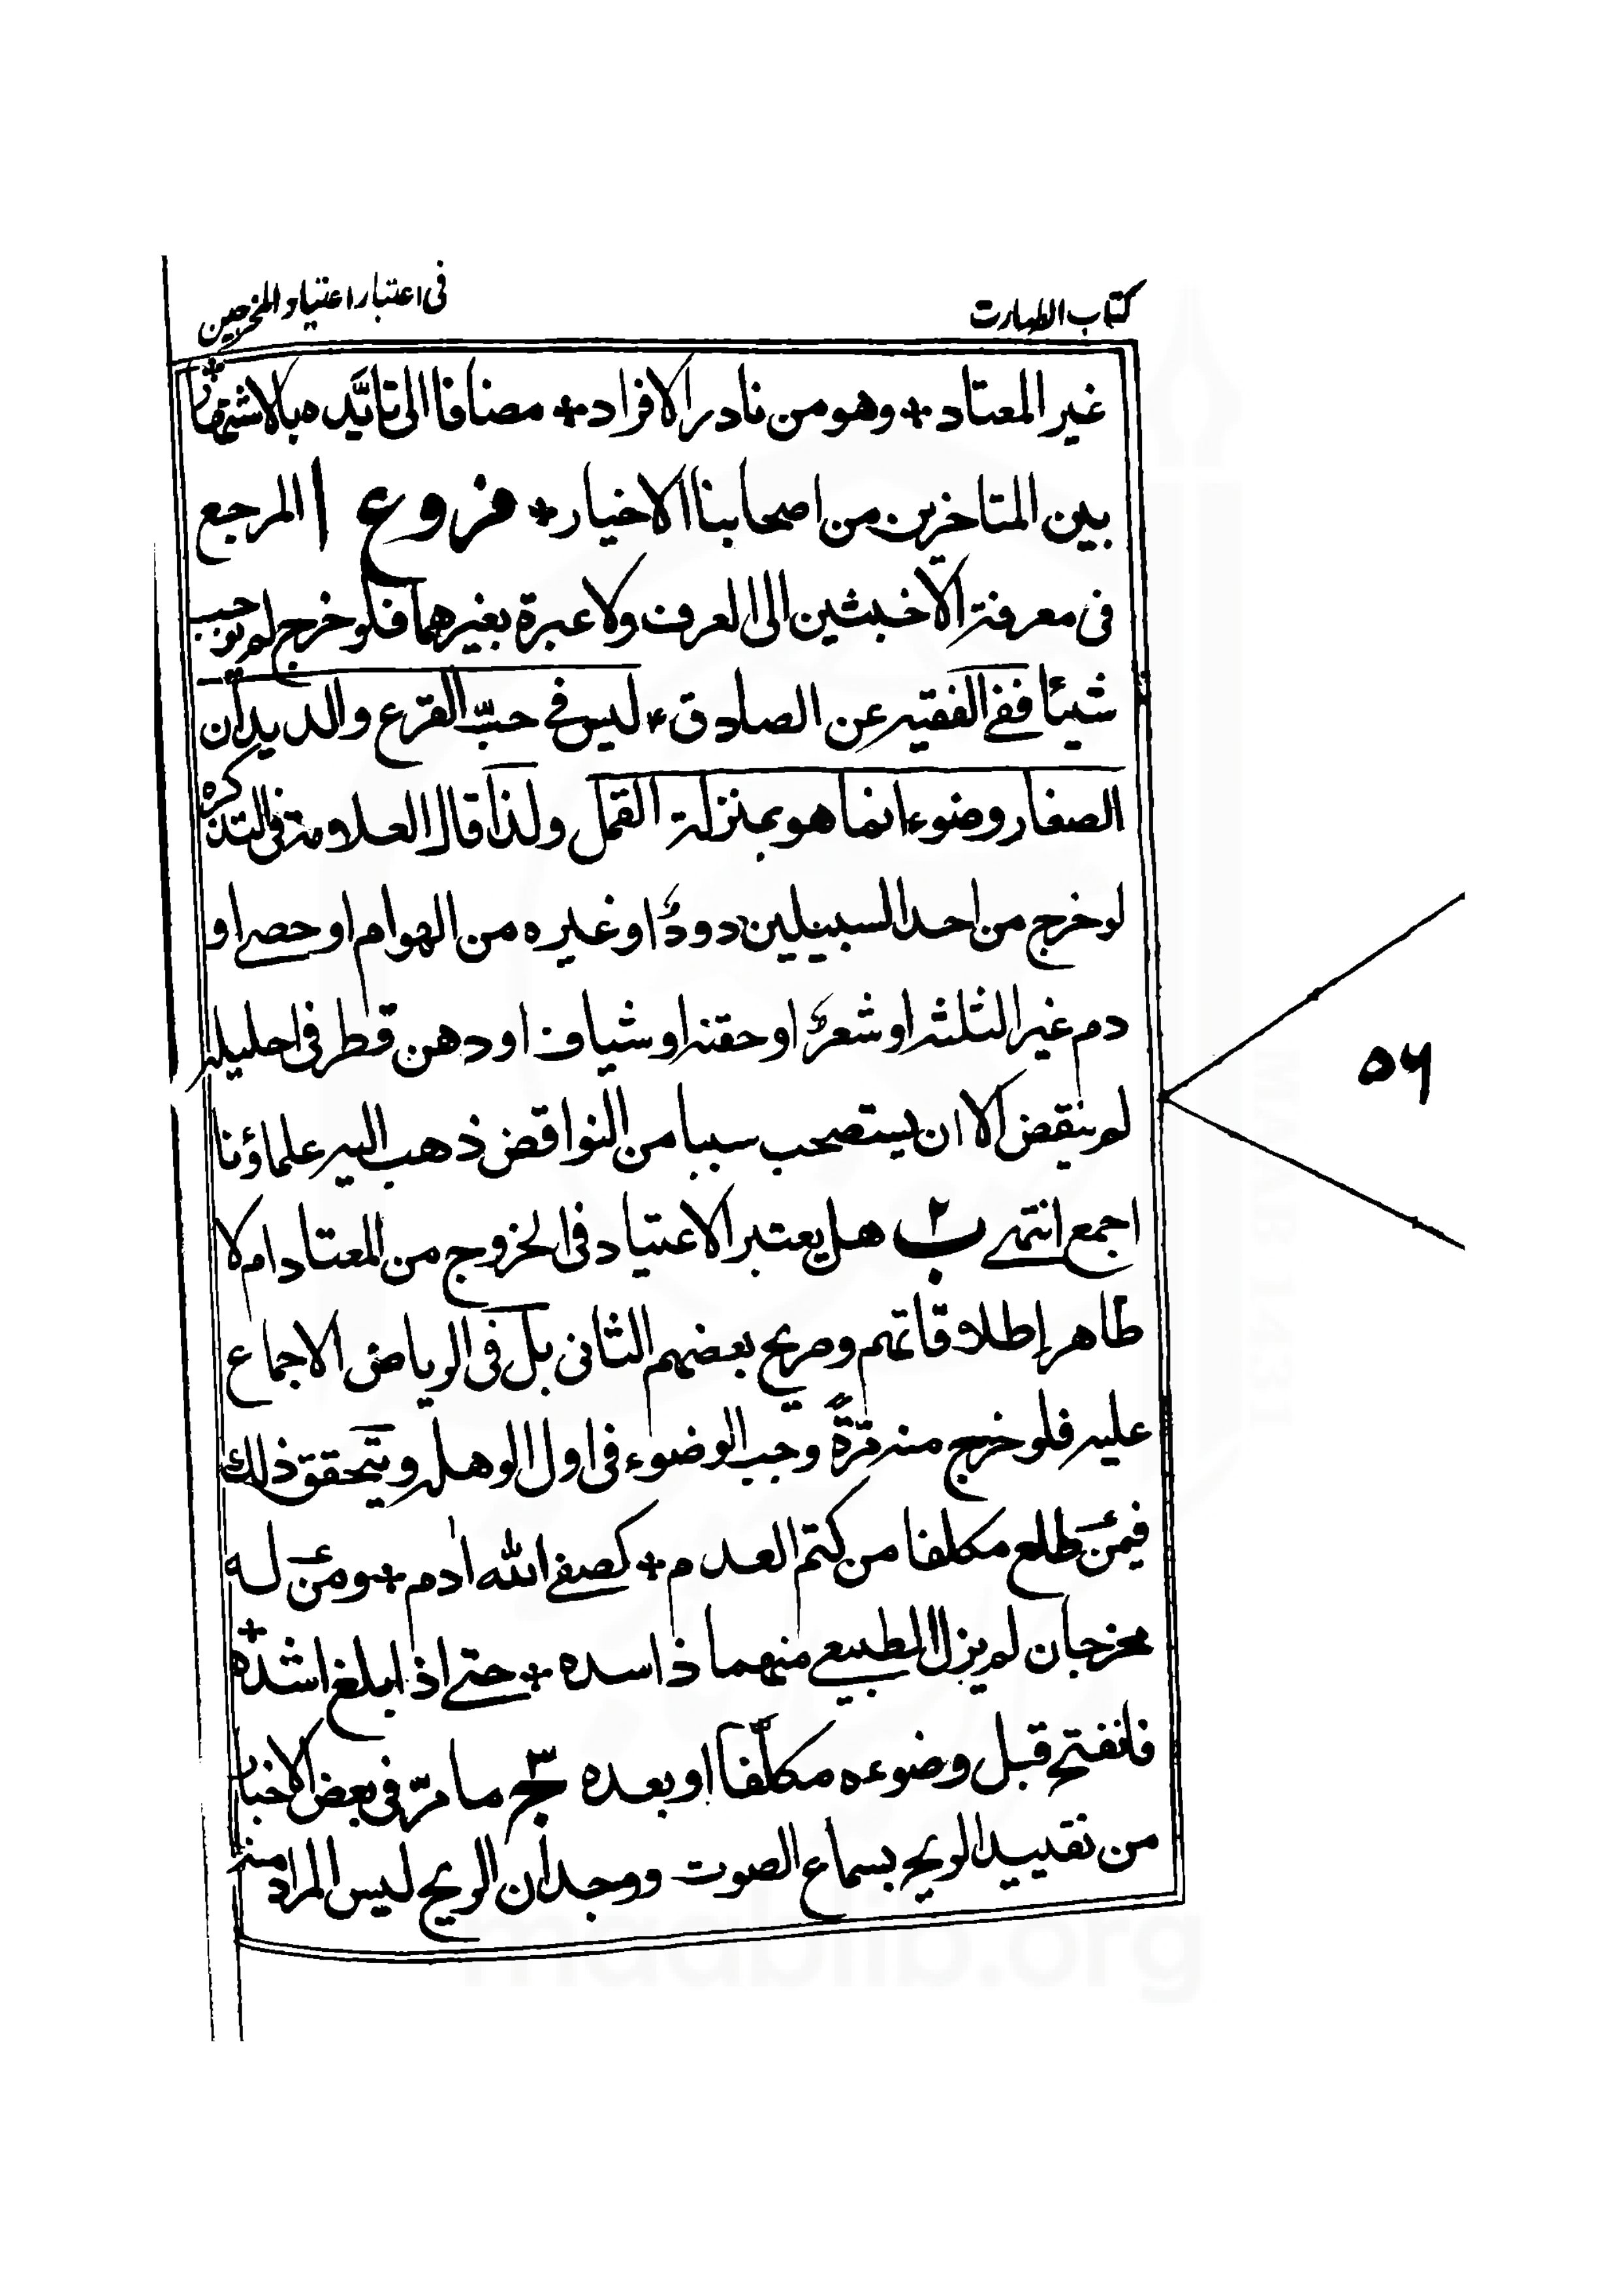 كتاب الطهارت
فى اعتبار اعتياد المخرجين
غير المعتاد + وهو من نادر الافراد + مضافا الى تايّده بالاشتهار +
بين المتاخرين من اصحابنا الاخيار + فروع ا المرجع
فى معرفة الاخبثين الى العرف ولا عبرة بغيرهما فلو خرج لم يوجب
شيئا ففى الفقيه عن الصادق ع ليس فى حبّ القرع والديدان
الصغار وضوء انما هو بمنزلة القمل ولذا قال العلامة فى التذكره
لو خرج من احد السبيلين دودٌ او غيره من الهوام او حصى او
دم غير الثلثه او شعرٌ او حقنه او شياف او دهن قطر فى احليله
لم ينقض الا ان يستصحب سببا من النواقض ذهب اليه علماؤنا
اجمع انتهى ب ٢ هل يعتبر الاعتياد فى الخروج من المعتاد ام لا
ظاهر إطلاقاتهم وصريح بعضهم الثانى بل فى الرياض الاجماع
عليه فلو خرج منه مرّةً وجب الوضوء فى اول الوهله ويتحقق ذلك
فيمن طلع مكلفا من كتم العدم + كصفى الله ادم + ومن له
مخرجان لم يزل الطبيعى منهما ذا سده + حتى اذا بلغ اشدّه +
فانفتح قبل وضوءه مكلّفا او بعده ج ٣ ما مرّ فى بعض الاخبار
من تقييد الريح بسماع الصوت ووجدان الريح ليس المراد منه
٥٦
maablib.org
MAAB 1431